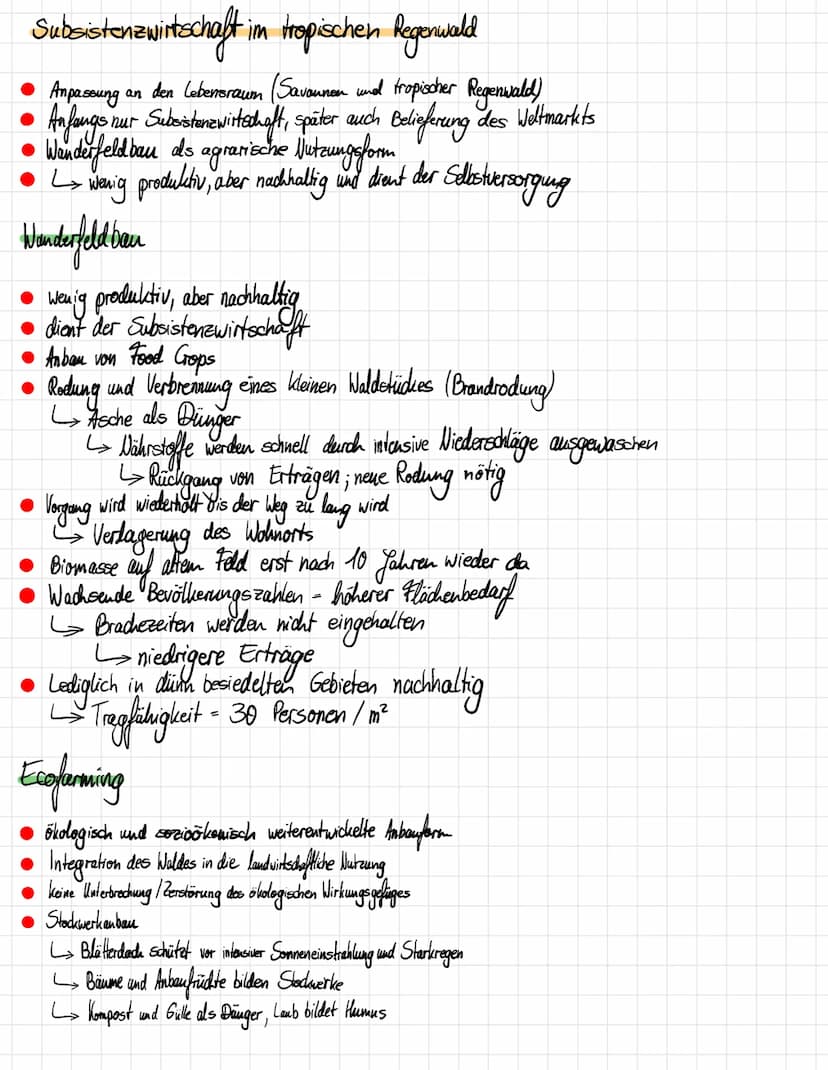 Subsistenzwirtschaft im tropischen Regenwald
Anpassung an den Lebensraum (Savannen und tropischer Regenwald)
Anfangs nur Subsistenzwirtschaft, später auch Belieferung des Weltmarkts
Wanderfeldbau als agrarische Nutzungsform
↳ wenig produktiv, aber nachhaltig und dient der Selbstversorgung
Wanderfeldbau
wenig produktiv, aber nachhaltig
dient der Subsistenzwirtschaft
Anbau von Food Crops
Rodung und Verbrennung eines kleinen Waldstückes (Brandrodung)
↳ Asche als Dünger
↳ Nährstoffe werden schnell durch intensive Niederschläge ausgewaschen
↳ Rückgang von Erträgen; neue Rodung nötig
Vorgang wird wiederholt bis der Weg zu lang wird
↳ Verlagerung des Wohnorts
Biomasse auf altem Feld erst nach 10 Jahren wieder da
Wachsende Bevölkerungszahlen = höherer Flächenbedarf
↳ Brachezeiten werden nicht eingehalten
↳ niedrigere Erträge
Lediglich in dünn besiedelten Gebieten nachhaltig
↳ Tragfähigkeit = 30 Personen / m²
Ecofarming
ökologisch und sozioökomisch weiterentwickelte Anbauform
Integration des Waldes in die landwirtschaftliche Nutzung
keine Unterbrechung / Zerstörung des ökologischen Wirkungsgefüges
Stockwerkanbau
↳ Blätterdach schützt vor intensiver Sonneneinstrahlung und Starkregen
↳ Bäume und Anbaufrüchte bilden Stockwerke
↳ Kompost und Gülle als Dünger, Laub bildet Humus